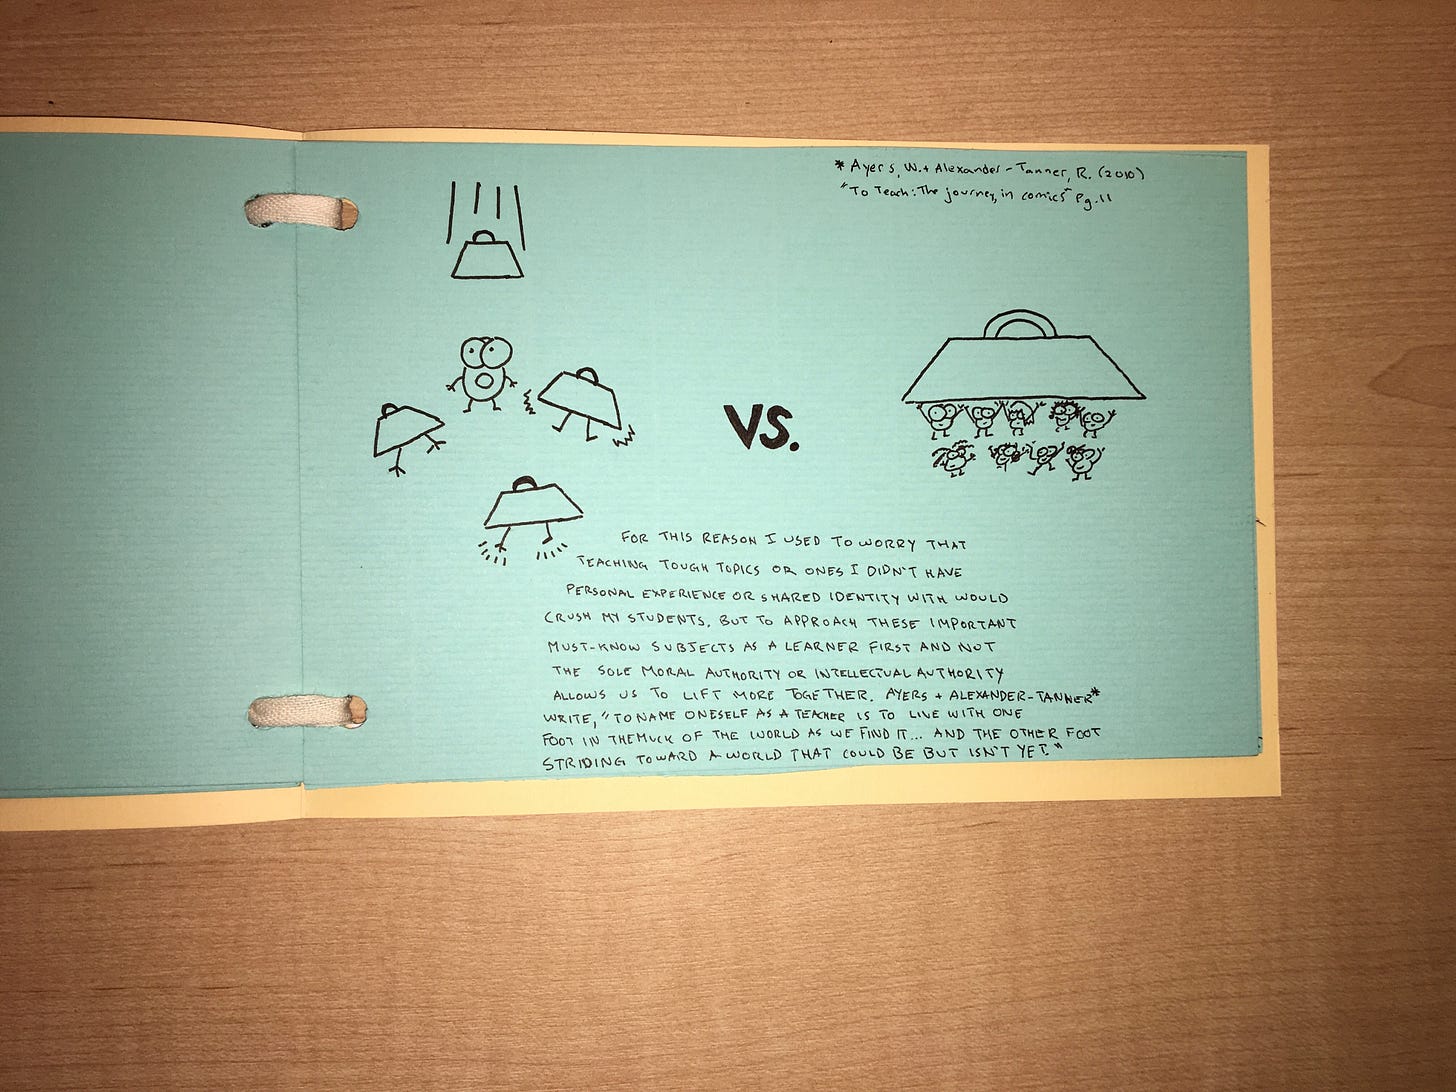 * Ayers, W. + Alexander-Tanner, R. (2010)
"To Teach: The journey, in comics" Pg. 11
VS.
FOR THIS REASON I USED TO WORRY THAT
TEACHING TOUGH TOPICS OR ONES I DIDN'T HAVE
PERSONAL EXPERIENCE OR SHARED IDENTITY WITH WOULD
CRUSH MY STUDENTS, BUT TO APPROACH THESE IMPORTANT
MUST-KNOW SUBJECTS AS A LEARNER FIRST AND NOT
THE SOLE MORAL AUTHORITY OR INTELLECTUAL AUTHORITY
ALLOWS US TO LIFT MORE TOGETHER. AYERS + ALEXANDER-TANNER*
WRITE, "TO NAME ONESELF AS A TEACHER IS TO LIVE WITH ONE
FOOT IN THE MUCK OF THE WORLD AS WE FIND IT... AND THE OTHER FOOT
STRIDING TOWARD A WORLD THAT COULD BE BUT ISN'T YET."